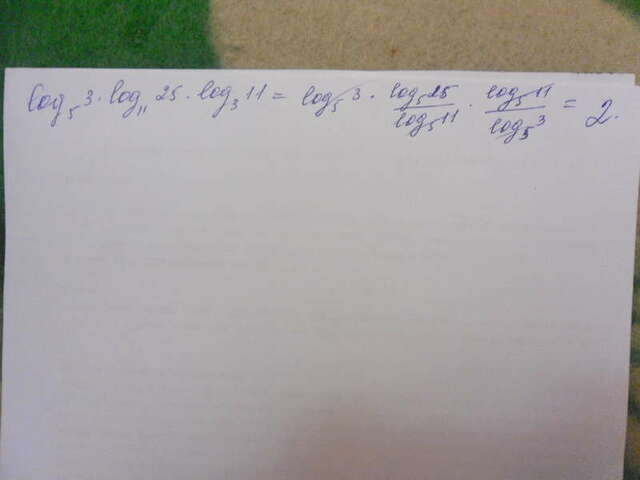 log₅ 3 · log₁₁ 25 · log₃ 11 = log₅ 3 · (log₅ 25)/(log₅ 11) · (log₅ 11)/(log₅ 3) = 2.